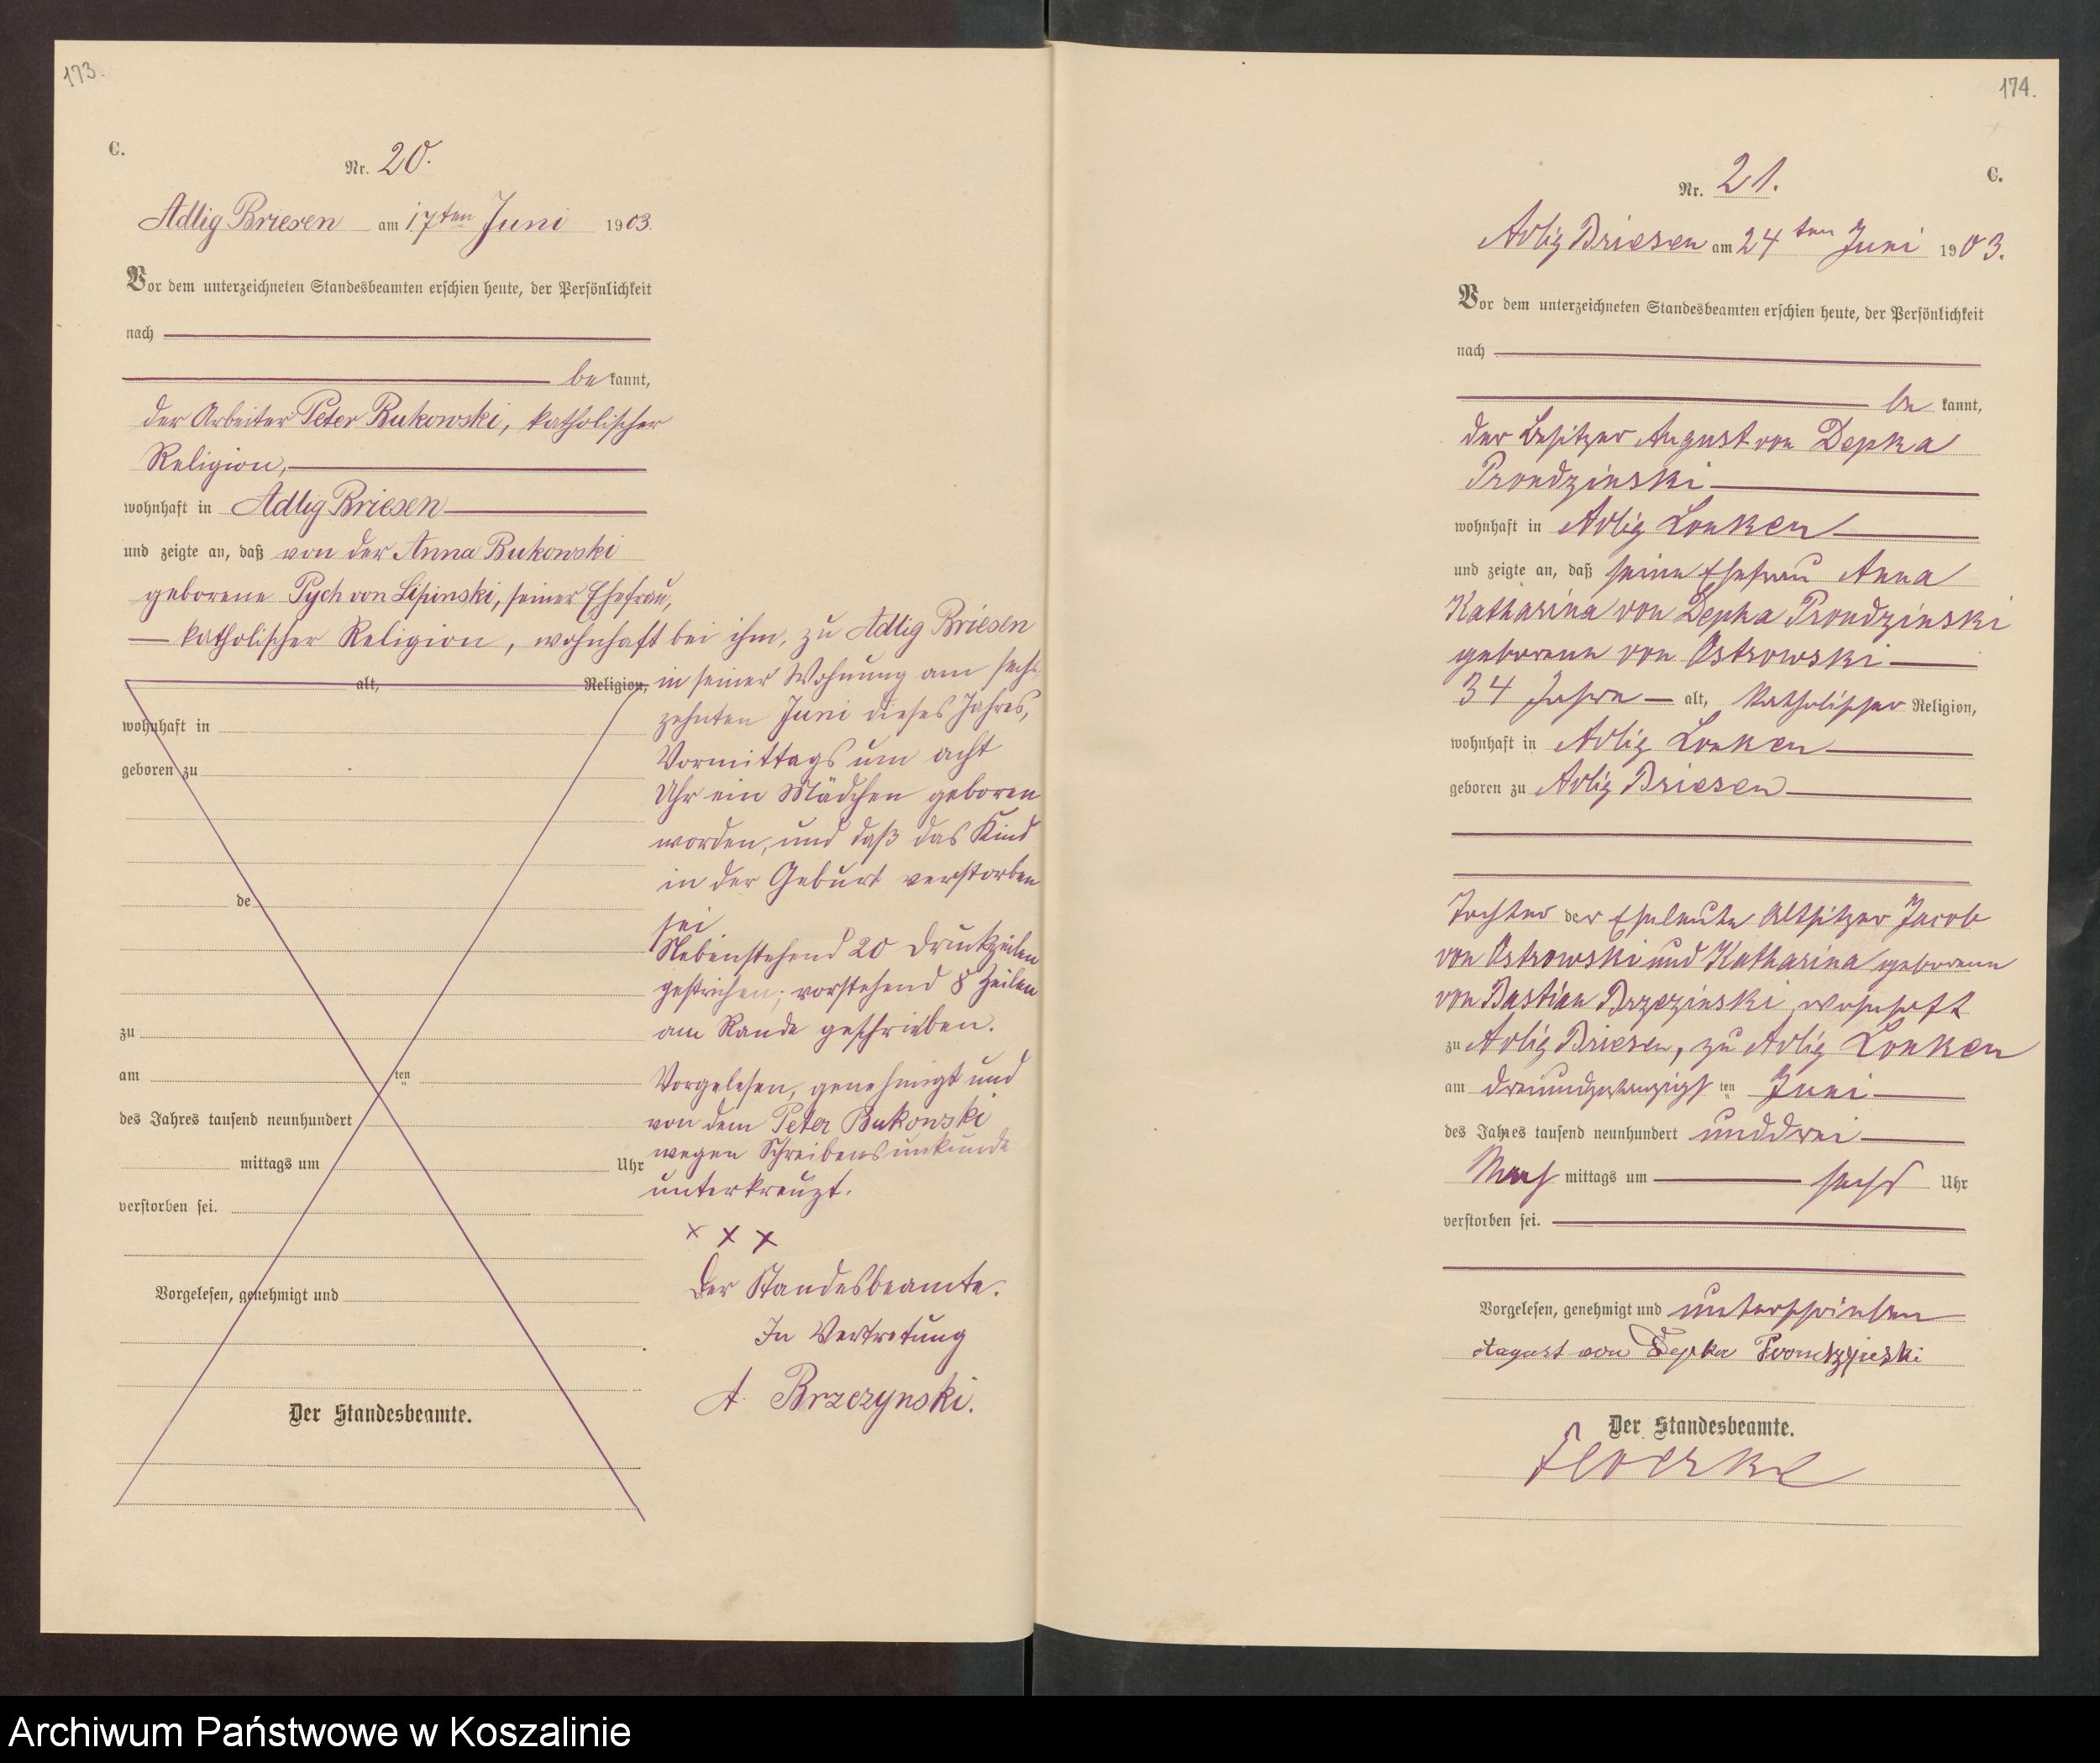 173.
C.
Nr. 20.
Adlig Briesen am 17ten Juni 1903.
Vor dem unterzeichneten Standesbeamten erschien heute, der Persönlichkeit
nach
be kannt,
der Arbeiter Peter Bukowski, katholischer
Religion,
wohnhaft in Adlig Briesen
und zeigte an, daß von der Anna Bukowski
geborene Pych von Lipinski, seiner Ehefrau,
katholischer Religion, wohnhaft bei ihm, zu Adlig Briesen
alt, Religion,
wohnhaft in
geboren zu
de
zu
am ten
des Jahres tausend neunhundert
mittags um Uhr
verstorben sei.
Vorgelesen, genehmigt und
Der Standesbeamte.
in seiner Wohnung am sech-
zehnten Juni dieses Jahres,
Vormittags um acht
Uhr ein Mädchen geboren
worden, und daß das Kind
in der Geburt verstorben
sei
Nebenstehend 20 Druckzeilen
gestrichen; vorstehend 8 Zeilen
am Rande geschrieben.
Vorgelesen, genehmigt und
von dem Peter Bukowski
wegen Schreibensunkunde
unterkreuzt.
x x x
Der Standesbeamte.
In Vertretung
A. Brzezynski.
174.
C.
Nr. 21.
Adlig Briesen am 24ten Juni 1903.
Vor dem unterzeichneten Standesbeamten erschien heute, der Persönlichkeit
nach
be kannt,
der Besitzer August von Depka
Prondzinski
wohnhaft in Adlig Lonken
und zeigte an, daß seine Ehefrau Anna
Katharina von Depka Prondzinski
geborene von Ostrowski
34 Jahre alt, katholischer Religion,
wohnhaft in Adlig Lonken
geboren zu Adlig Briesen
Tochter der Eheleute Altsitzer Jacob
von Ostrowski und Katharina geborene
von Bastian Brzezinski, wohnhaft
zu Adlig Briesen, zu Adlig Lonken
am dreiundzwanzigsten Juni
des Jahres tausend neunhundert unddrei
Nach mittags um sechs Uhr
verstorben sei.
Vorgelesen, genehmigt und unterschrieben
August von Depka Prondzynski
Der Standesbeamte.
Archiwum Państwowe w Koszalinie